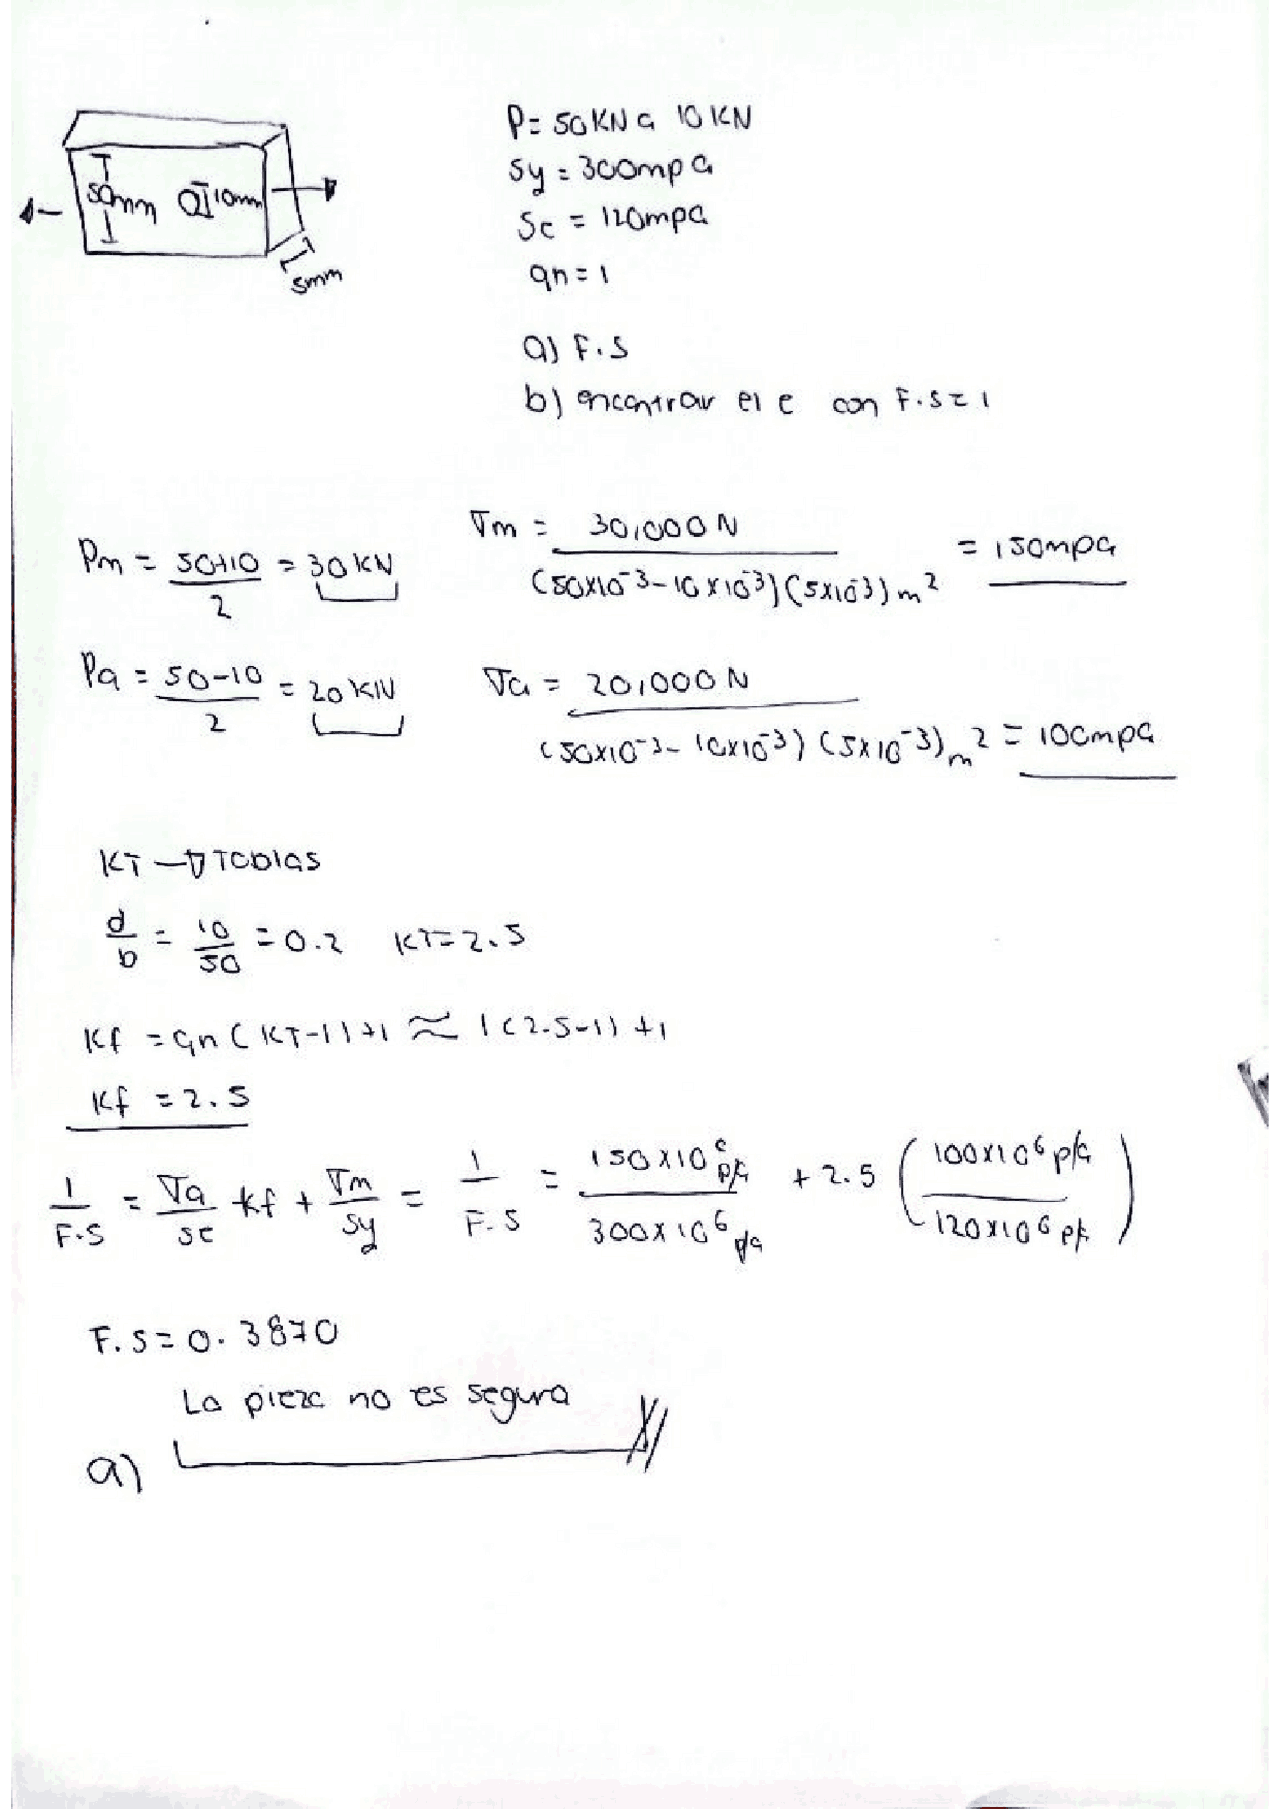 P= 50KN a 10KN
50mm 10mm
5mm
Sy = 300mpa
Se = 120mpa
qn = 1
a) F.S
b) encontrar el e con F.S = 1
Pm = (50+10)/2 = 30 KN
σm = 30,000N/((50x10^-3 - 10x10^-3)(5x10^-3)m^2) = 150mpa
Pa = (50-10)/2 = 20 KN
σa = 20,000N/((50x10^-3 - 10x10^-3)(5x10^-3)m^2) = 100mpa
KT → Tablas
d/b = 10/50 = 0.2 KT=2.5
Kf = qn(KT-1)+1 ≈ 1(2.5-1)+1
Kf = 2.5
1/F.S = σa/se kf + σm/sy = 1/F.S = 150x10^6 pa/300x10^6 pa + 2.5 (100x10^6 pa/120x10^6 pa)
F.S = 0.3870
La pieza no es segura
a)